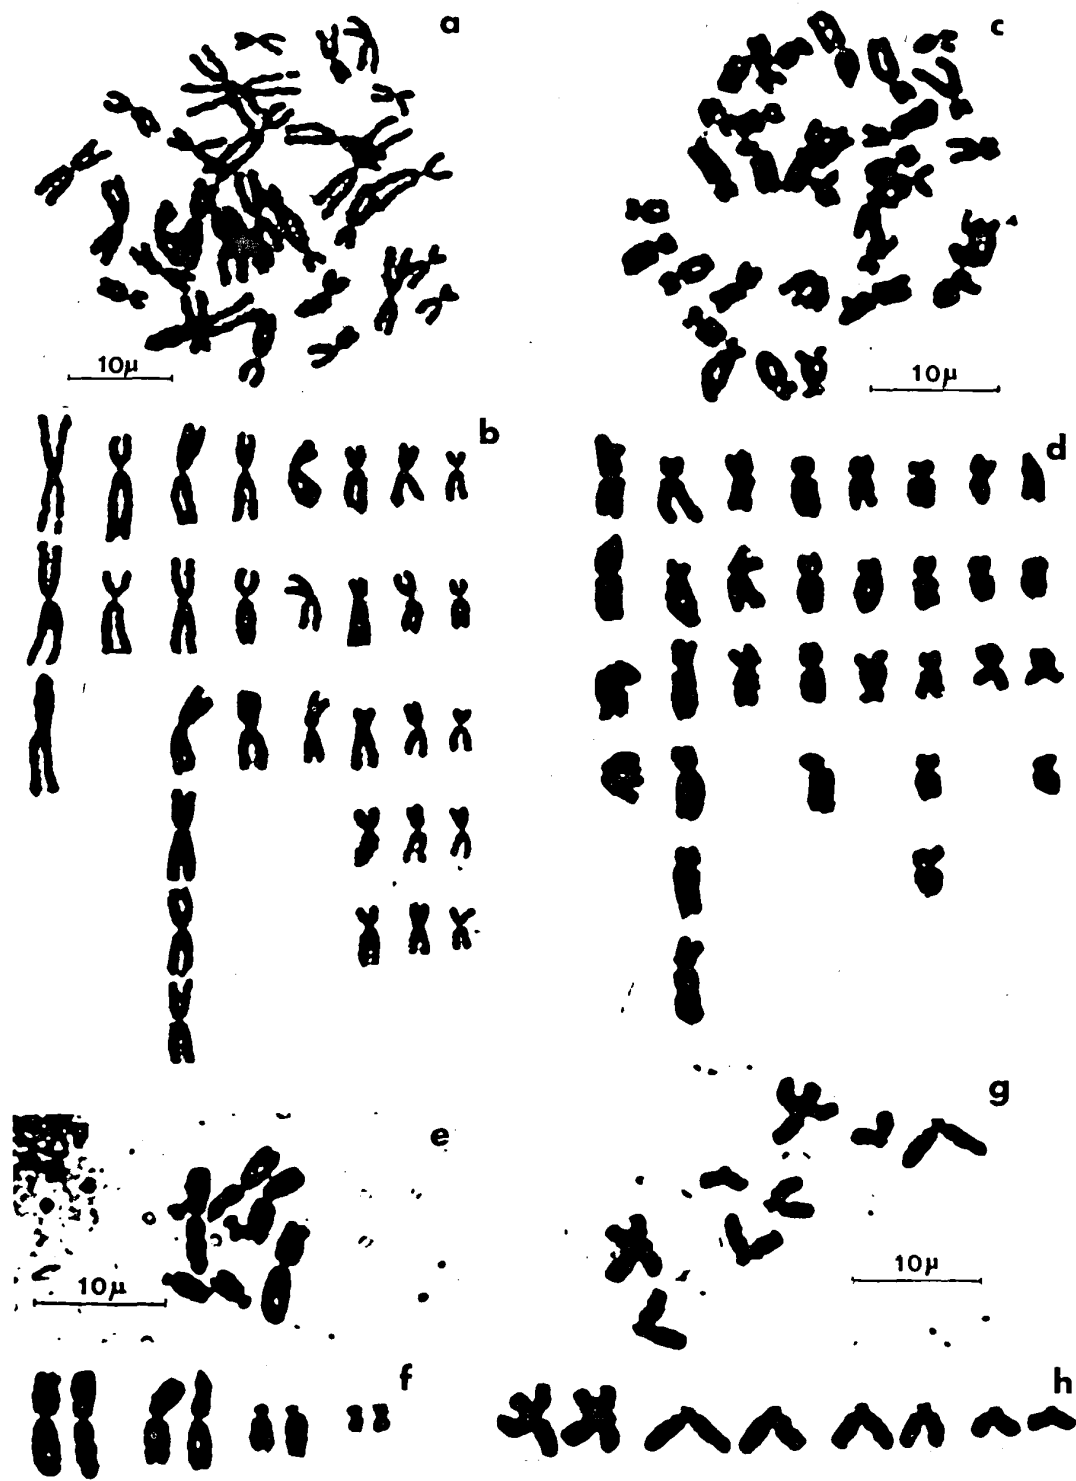 a
c
10μ
10μ
b
d
e
g
10μ
10μ
f
h